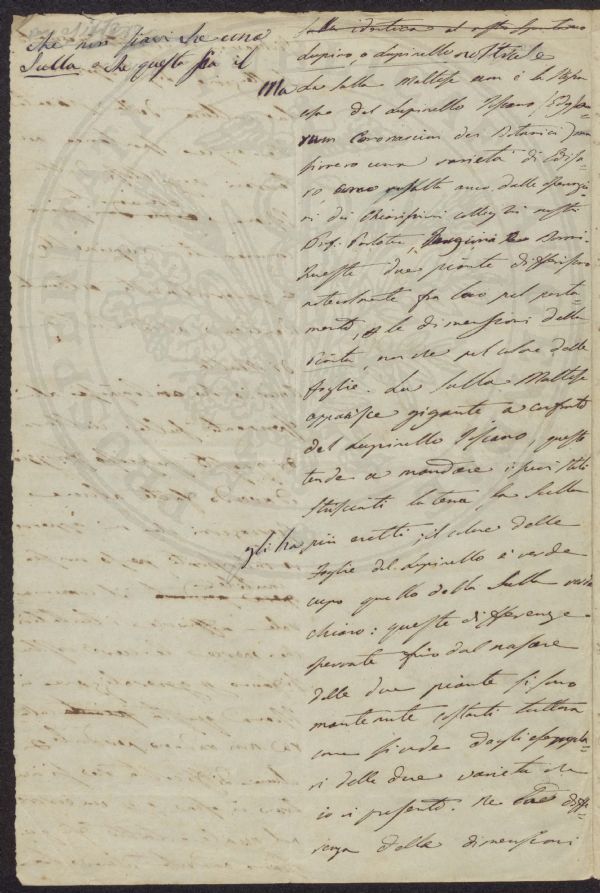 che non siavi che una
Sulla e che questa sia il
Sulla identica al nostro spontaneo
Lupino, o Lupinello
Ma La Sulla Maltese non è la stessa
cosa del Lupinello Toscano,
rum Coronarium dei Botanici) ma
una varietà di
come risulta anco dalle
ni dei Chiarissimi colleghi nostri
Prof.
Queste due piante differiscono
notevolmente fra loro pel porta-
mento, le dimensioni della
pianta, non che pel colore delle
foglie. La Sulla Maltese
apparisce gigante a confronto
del Lupinello Toscano, questo
tende a mandare i suoi steli
la terra, la Sulla
gli ha più eretti; il colore delle
foglie del Lupinello è verde
cupo quello della Sulla verde
chiaro: queste differenze
fino dal nascere
delle due piante si sono
mantenute costanti tuttora
come si vede dagli esempla-
ri delle due varietà che
io vi presento. Ne tale diffe-
renza delle dimensioni